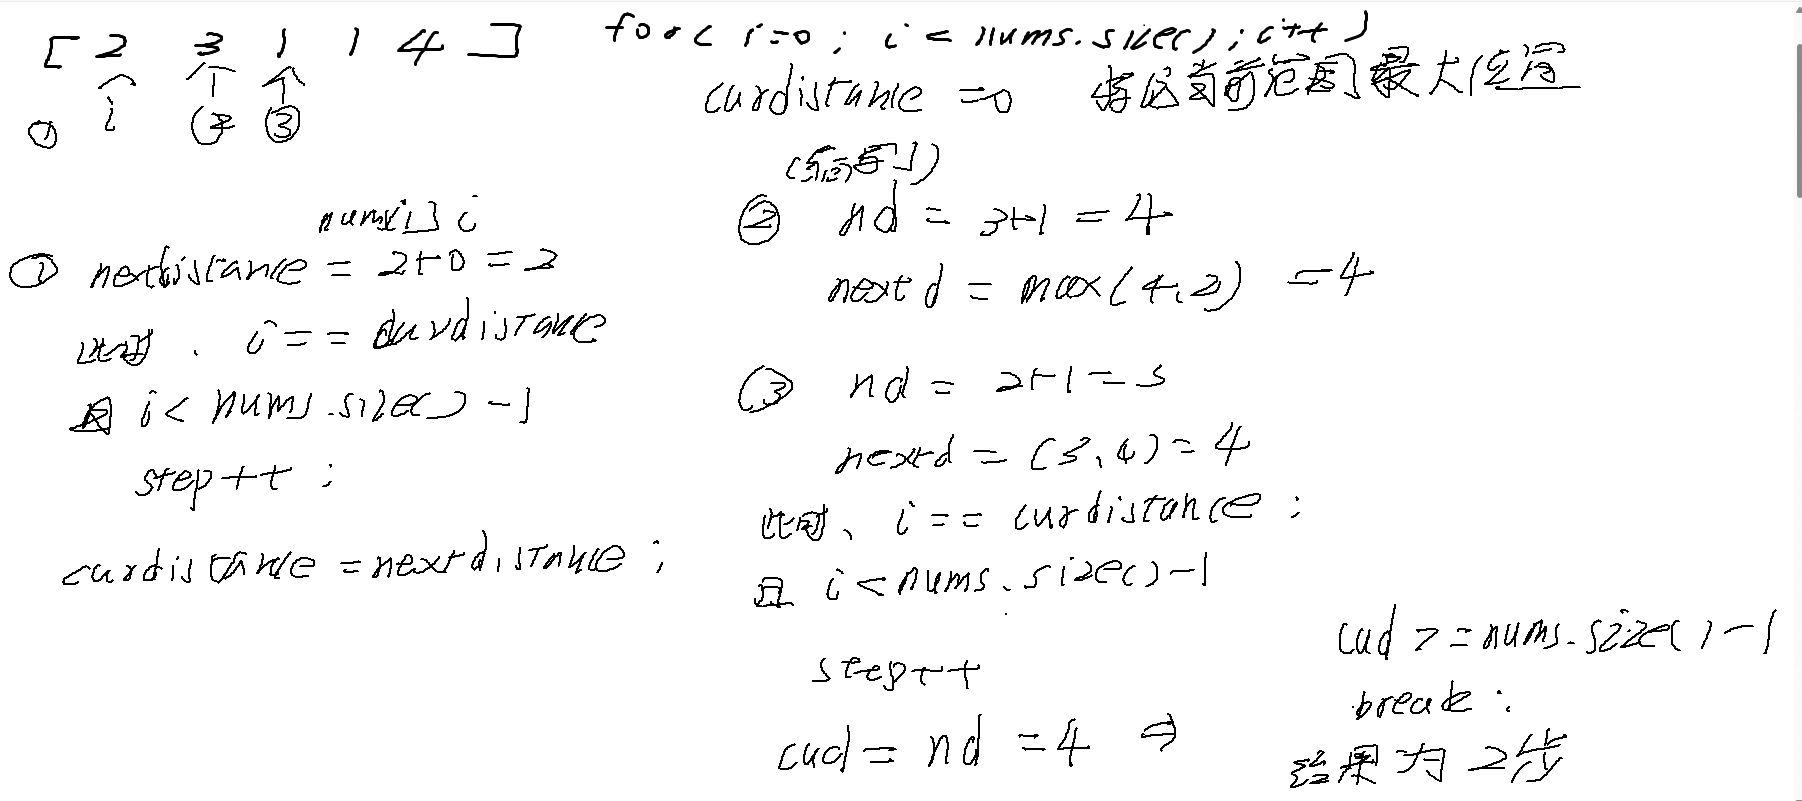 [ 2 3 1 1 4 ]
for( i=0; i < nums.size(); i++ )
i ② ③
①
curdistance =0 当前范围最大位置
nums[i] i
① nextdistance = 2+0 = 2
此时. i == curdistance
且 i < nums.size() -1
step++ ;
curdistance = nextdistance ;
② nd = 3+1 = 4
nextd = max(4,2) =4
③ nd = 2+1=3
nextd = (3,4) = 4
此时、i == curdistance ;
且 i < nums.size()-1
step++
cud = nd =4 ⇒
cud >= nums.size()-1
break ;
结果为 2步